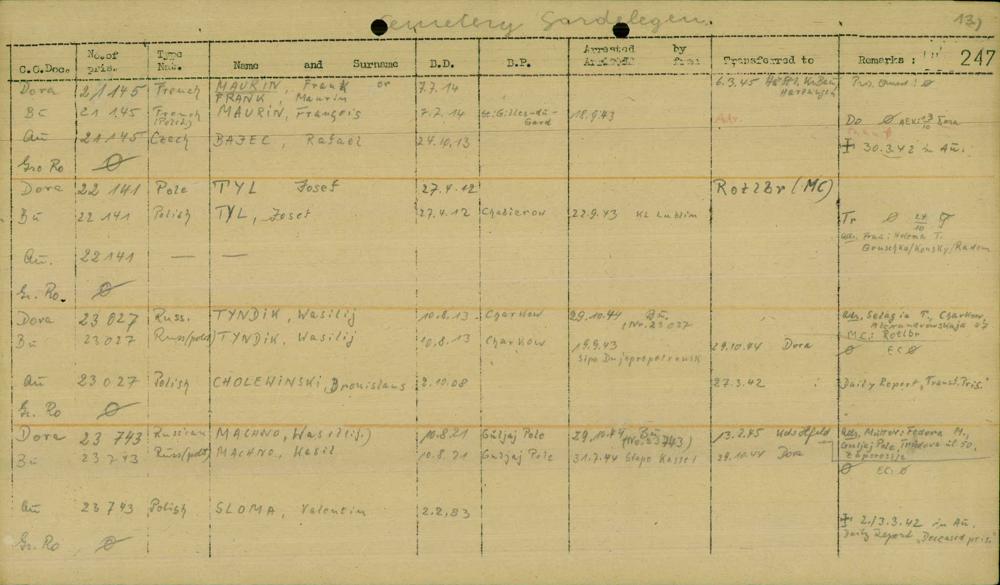 Cemetery Gardelegen.
13)
247
C.C.Doc. No.of pris. Type Nat. Name and Surname B.D. B.P. Arrested by Arrived from Transferred to Remarks :
Dora 21145 French MAURIN, Frank or 7.7.14 6.3.45
FRANK, Maurin Harzungen
Bu 21145 French (Polit.) MAURIN, François 7.7.14 St. Gilles-du-Gard 18.9.43 Do Ø Dora
Au 21145 Czech BAJEC, Rafael 24.10.13 30.3.42 in Au.
Gro Ro Ø
Dora 22141 Pole TYL Josef 27.4.12 Rotlbr (MC)
Bu 22141 Polish TYL, Josef 27.4.12 Chabierow 22.9.43 KL Lublin Tr Ø 24/10
Adr. Frau: Helena T.
Gruschka/Konsky/Radom
Au. 22141 — —
Gr. Ro. Ø
Dora 23027 Russ. TYNDIK, Wasilij 10.8.13 Charkow 29.10.44 Bu. (Nr. 23027 Adr. Selagia T., Charkow,
MC: Rotlbr
Bu 23027 Russ(polit) TYNDIK, Wasilij 10.8.13 Charkow 19.9.43 29.10.44 Dora Ø EC Ø
Sipo Dnjepropetrowsk
Au 23027 Polish CHOLEWINSKI, Bronislaus 2.10.08 27.3.42 Daily Report „Transf. Pris."
Gr. Ro Ø
Dora 23743 Russian MACHNO, Wasilij.) 10.8.21 Guljaj Pole 29.10.44 Bu (No. 23743) 13.2.45 Adr. Mutter: Fedora M.,
Guljaj Pole, ul. 50,
Saporosije
Bu 23743 Russ(polit) MACHNO, Wasil 10.8.21 Guljaj Pole 31.7.44 Stapo Kassel 29.10.44 Dora Ø EC: Ø
Au 23743 Polish SLOMA, Valentin 2.2.83 2./3.3.42 in Au.
Daily Report „Deceased pris."
Gr. Ro Ø